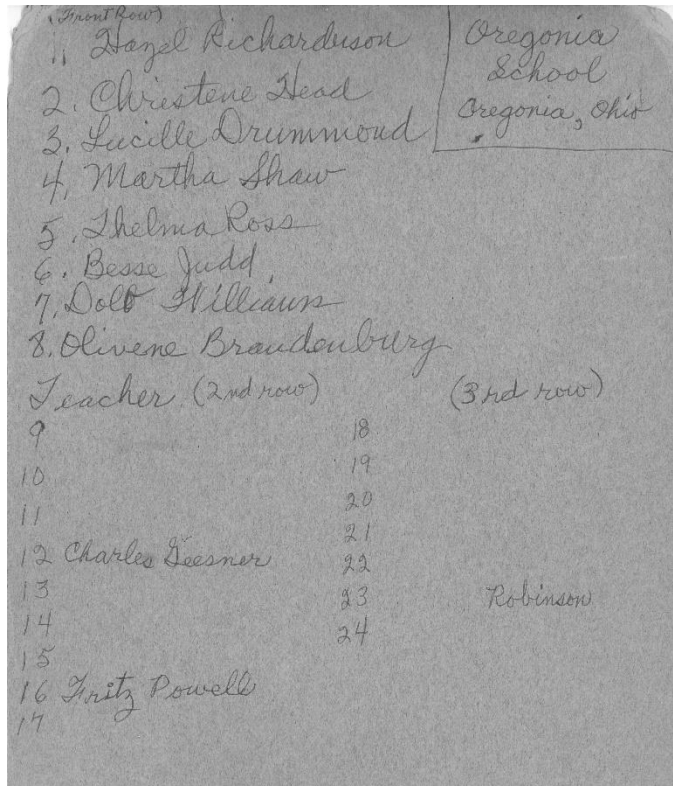 (Front Row)
1. Hazel Richardson
2. Christene Head
3. Lucille Drummond
4. Martha Shaw
5. Thelma Ross
6. Besse Judd
7. Dolo Williams
8. Olivene Brandenburg
Oregonia
School
Oregonia, Ohio
Teacher (2nd row)
9
10
11
12 Charles Geesner
13
14
15
16 Fritz Powell
17
(3rd row)
18
19
20
21
22
23 Robinson
24